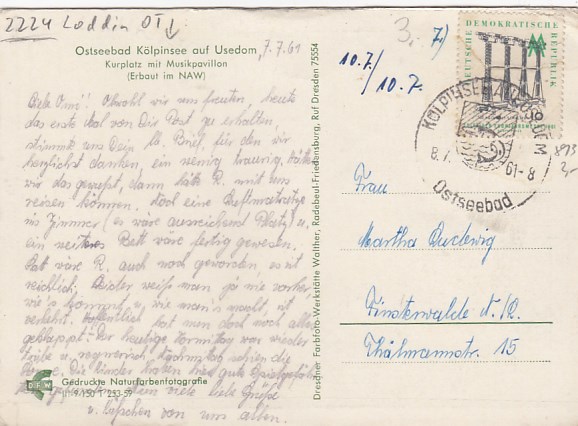 2224 Loddin OT
Ostseebad Kölpinsee auf Usedom,
7.7.61
Kurplatz mit Musikpavillon
(Erbaut im NAW)
Liebe Omi! Obwohl wir uns freuten, heute
das erste Mal von Dir Post zu erhalten,
stimmte uns Dein lb. Brief, für den wir
herzlichst danken, ein wenig traurig. Hätten
wir das gewußt, dann hätte R. mit uns
reisen können. Noch eine Aufbettmatratze
im Zimmer (es wäre ausreichend Platz) u.
ein weiteres Bett wäre fertig gewesen.
Satt wäre R. auch noch geworden, es ist
reichlich. Leider weiß man ja nie vorher,
wie's kommt u. wie man's macht, ist
verkehrt. Hoffentlich hat nun doch noch alles
geklappt! Der heutige Vormittag war wieder
trübe u. regnerisch, nachmittag schien die
Sonne. Die Kinder haben hier gute Spielgefährten
viele liebe Grüße
u. Küßchen von uns allen.
DFW
Gedruckte Naturfarbenfotografie
Dresdner Farbfoto-Werkstätte Walther, Radebeul-Friedensburg, Ruf Dresden 75554
3,-
7/
10.7./
/10.7.
DEUTSCHE DEMOKRATISCHE REPUBLIK
KÖLPINSEE
8.7.61-8
Ostseebad
893
2,-
Frau
Martha Ludewig
Finsterwalde N.L.
Thälmannstr. 15